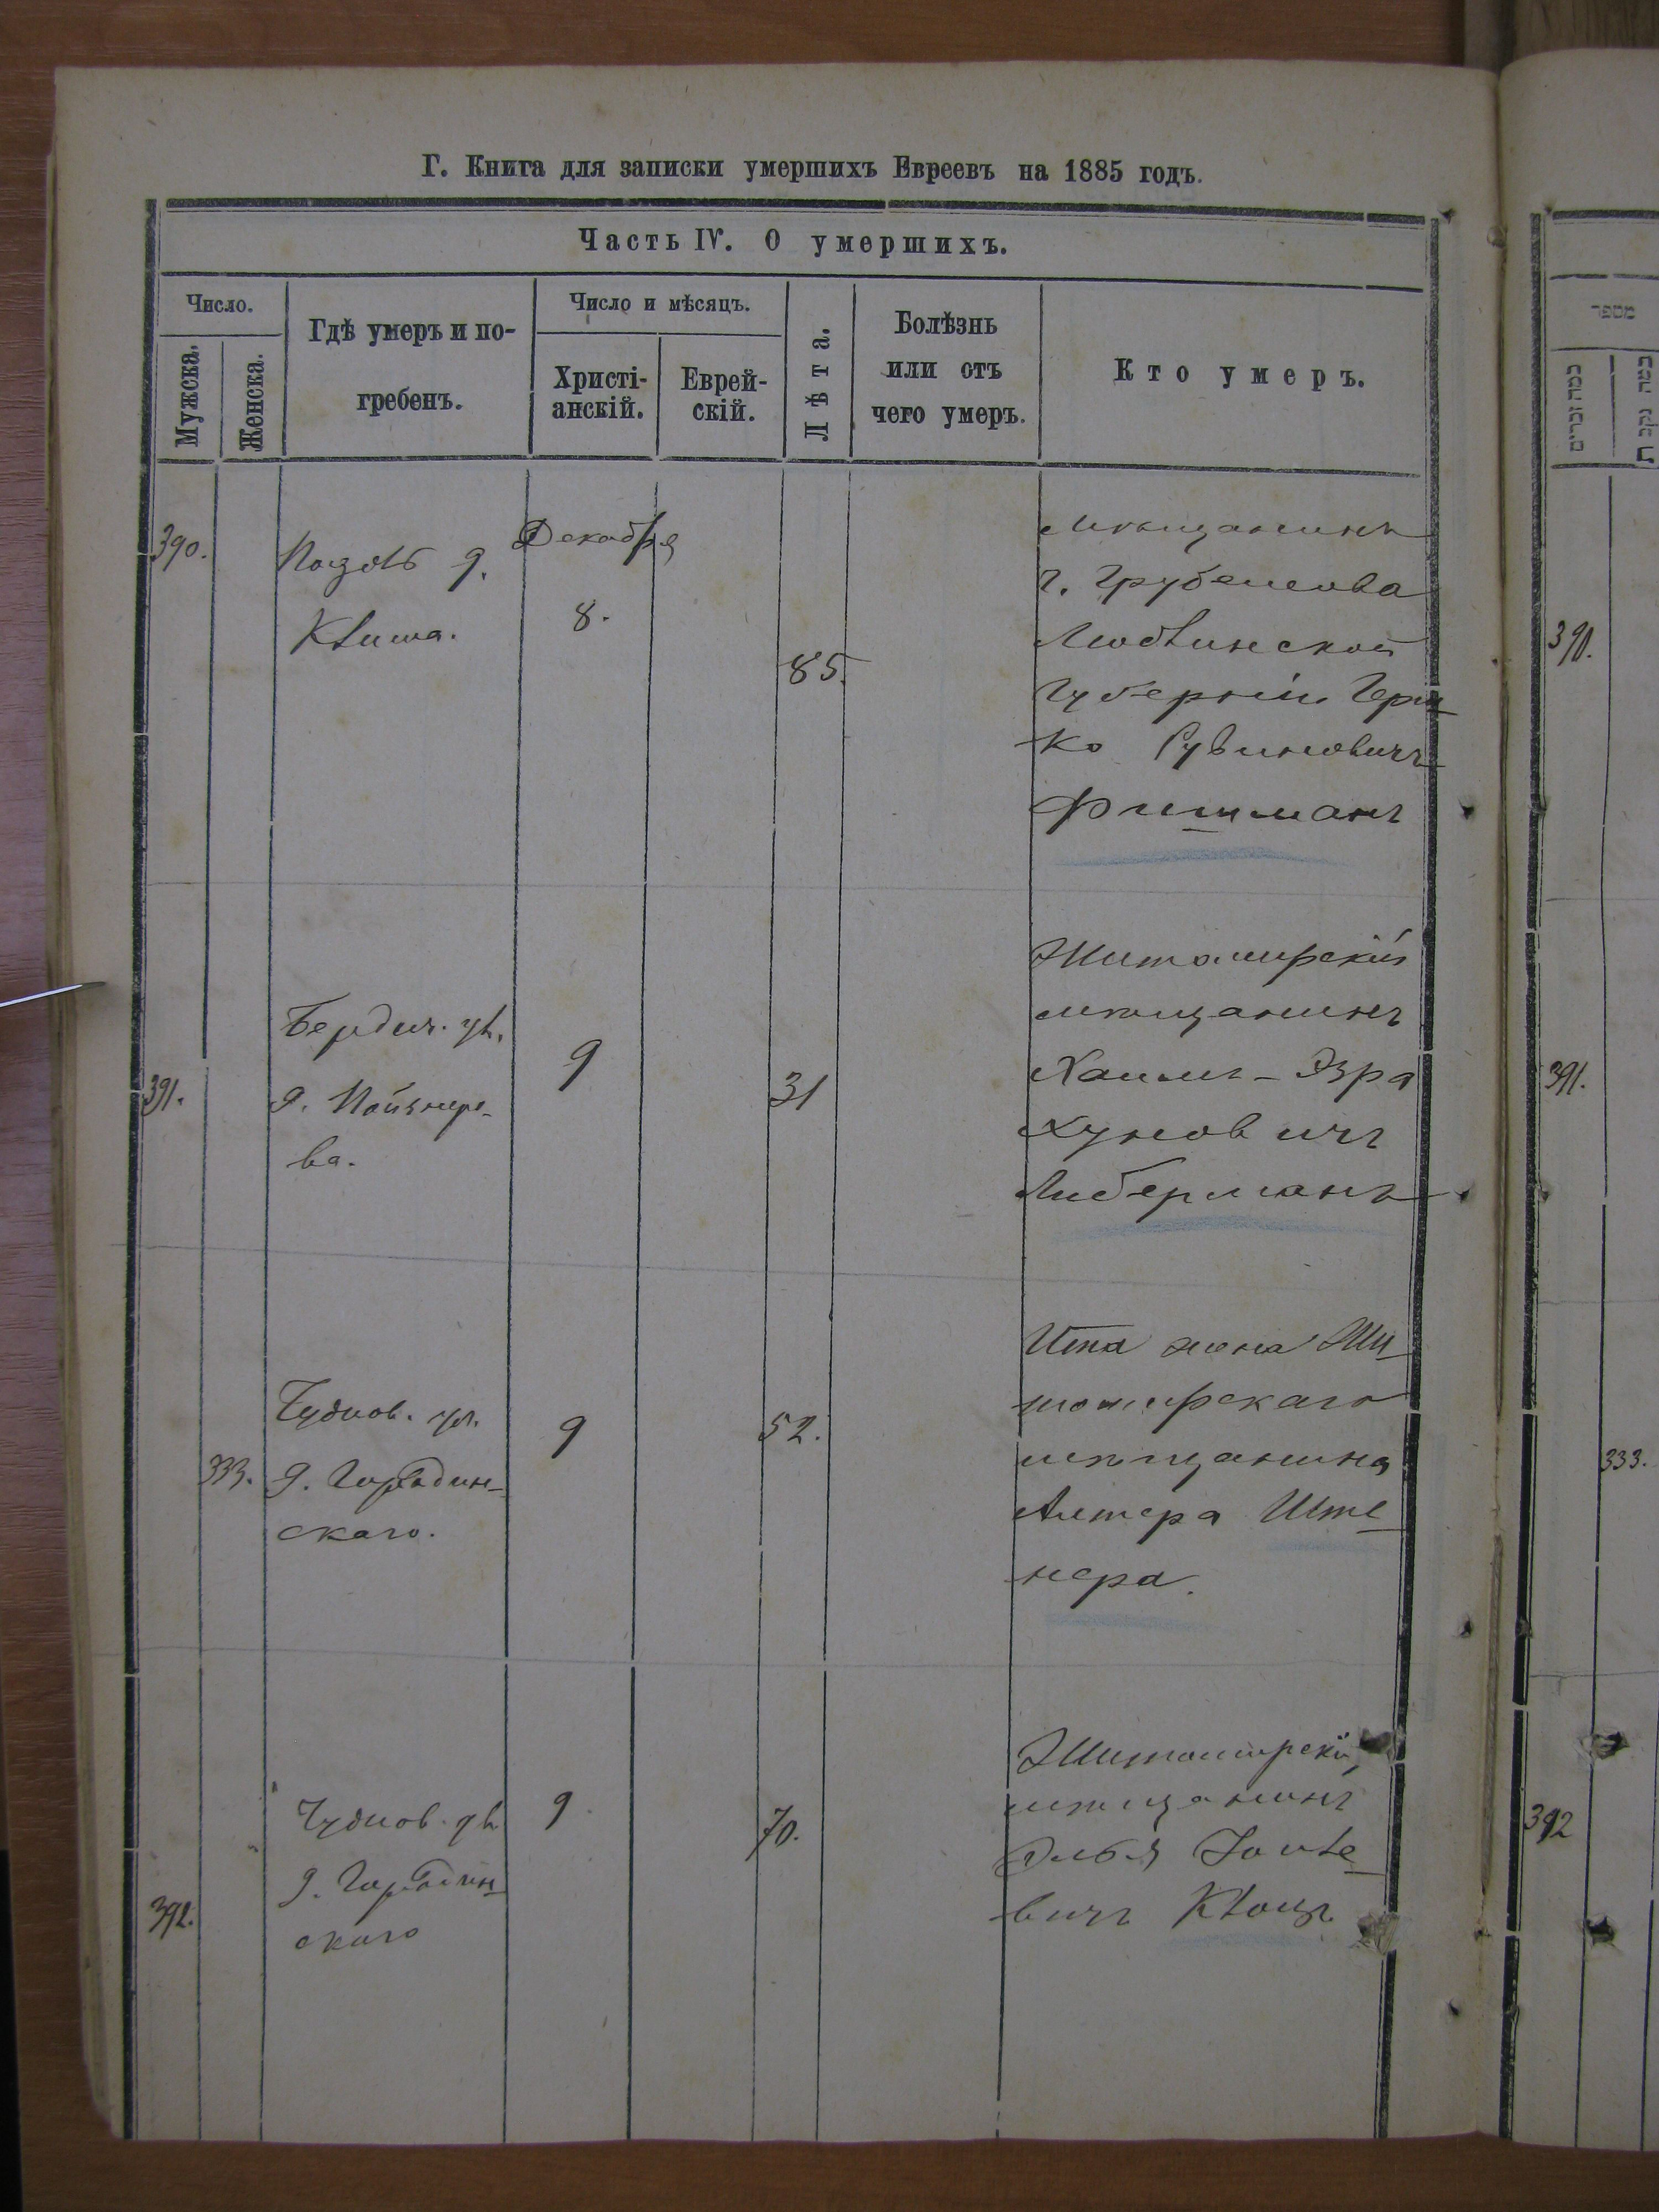 Г. Книга для записки умершихъ Евреевъ на 1885 годъ.
Часть IV. О умершихъ.
Число.
Мужска.
Женска.
Гдѣ умеръ и по-
гребенъ.
Число и мѣсяцъ.
Христі-
анскій.
Еврей-
скій.
Лѣта.
Болѣзнь
или отъ
чего умеръ.
Кто умеръ.
390.
д.
Декабря
8.
85.
мѣщанинъ
г. Грубешова
Люблинской
Губерніи Герш
ко Рувиновичъ
Фишманъ
391.
Бердич. ул.
д.
ва.
9
31
Житомирскій
мѣщанинъ
Хаимъ-Эзра
Хуновичъ
Либерманъ
333.
Чуднов. ул.
д. Городин-
скаго.
9
52.
Итка жена Жи
томирскаго
мѣщанина
АлтераШте
нера.
392.
Чуднов. ул.
д. Городин
скаго
9.
70.
Житомирскій
мѣщанинъ
Эльбя
вичъ Клоцъ
מספר
390.
391.
333.
392